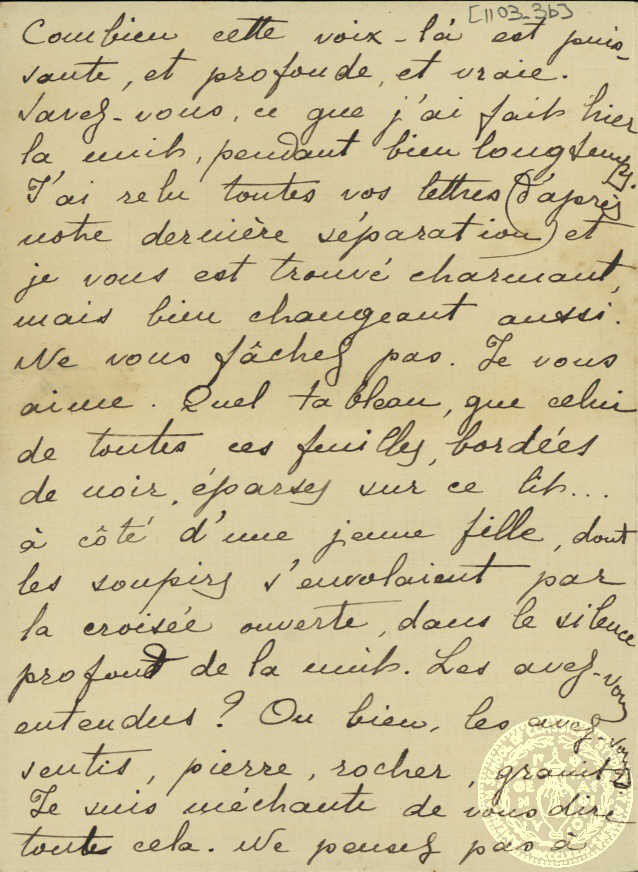 [1103.36]
Combien cette voix-là est puis-
sante, et profonde, et vraie.
Savez-vous, ce que j'ai fait hier
la nuit, pendant bien longtemps.
J'ai relu toutes vos lettres (d'après
notre dernière séparation) et
je vous est trouvé charmant,
mais bien changeant aussi.
Ne vous fâchez pas. Je vous
aime. Quel tableau, que celui
de toutes ces feuilles, bordées
de noir, éparses sur ce lit...
à côté d'une jeune fille, dont
les soupirs s'envolaient par
la croisée ouverte, dans le silence
profond de la nuit. Les avez-vous
entendus? Ou bien, les avez-vous
sentis, pierre, rocher, granit?
Je suis méchante de vous dire
toute cela. Ne pensez pas à